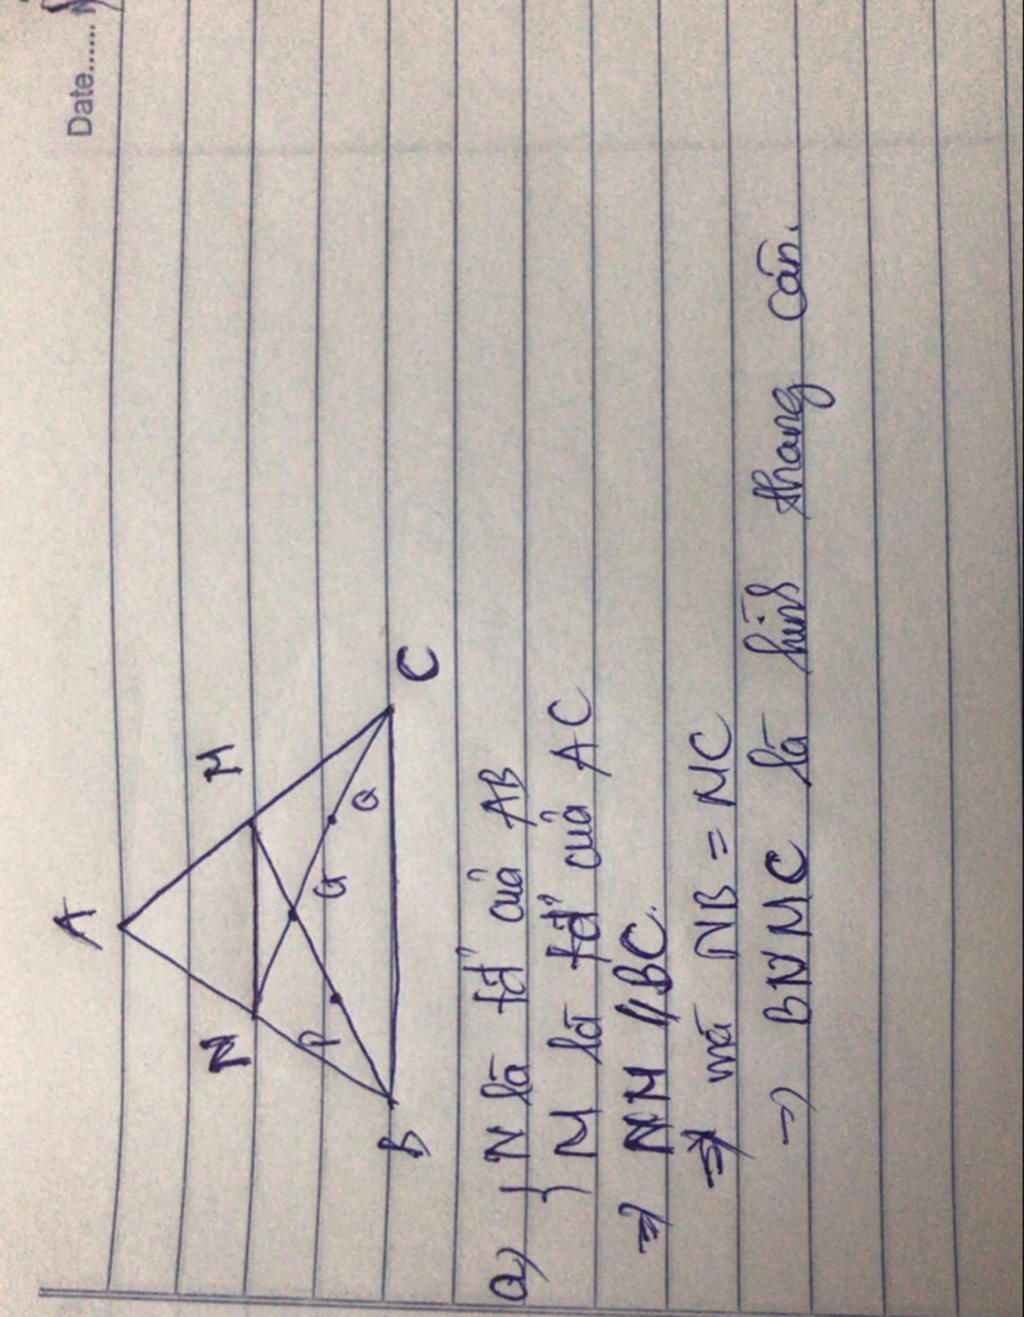 Date.......
A
N
M
P
G
Q
B
C
a) { N là tđ' của AB
M là tđ' của AC
=> NM // BC.
mà NB = MC
=> BNMC là hình thang cân.